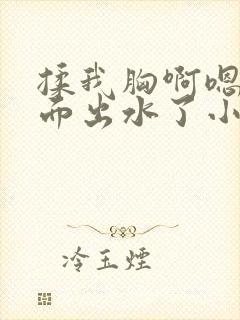 揉我胸啊嗯
而出水了小
冷玉煙